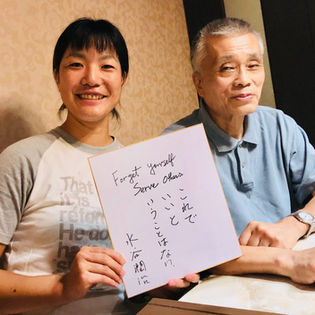 Forget yourself
Serve others
これで
いいと
いうことはない
That
it is